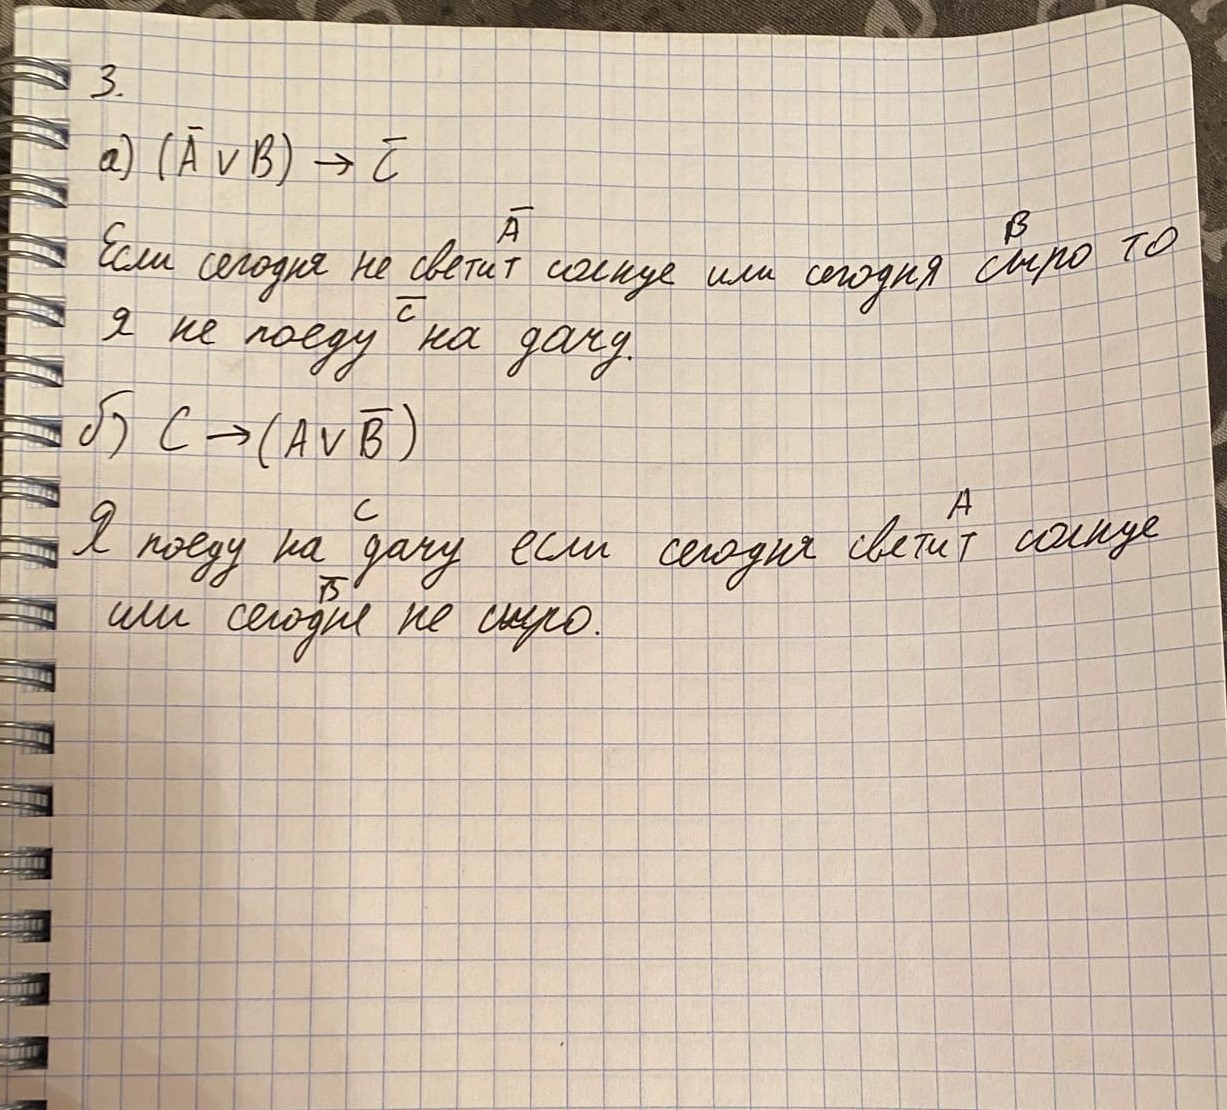 3.
а) (Ā ∨ B) → C̄
Ā B
Если сегодня не светит солнце или сегодня сыро то
C̄
я не поеду на дачу.
б) C → (A ∨ B̄)
C A
Я поеду на дачу если сегодня светит солнце
B̄
или сегодня не сыро.